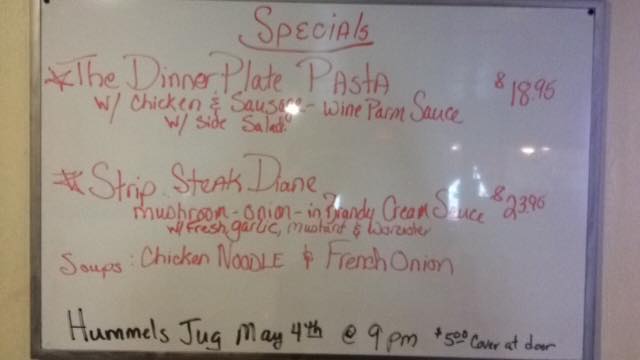 Specials
The Dinner Plate Pasta $18.95
w/ Chicken & Sausage - Wine Parm Sauce
w/ Side Salad
Strip Steak Diane
mushroom - onion - in Brandy Cream Sauce $23.95
w/ Fresh garlic, Mustard & Worcester
Soups: Chicken Noodle & French Onion
Hummels Jug May 4th @ 9pm $5.00 Cover at door